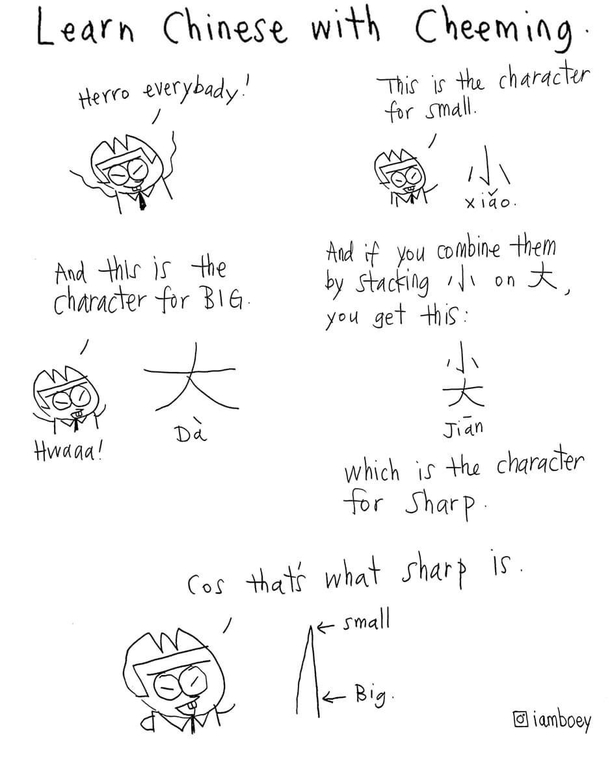 Learn Chinese with Cheeming.
Herro everybady!
This is the character
for small.
小
xiǎo.
And this is the
character for BIG.
大
Dà
Hwaaa!
And if you combine them
by stacking 小 on 大,
you get this:
小
大
Jiān
which is the character
for sharp.
Cos that's what sharp is.
← small
← Big.
iamboey